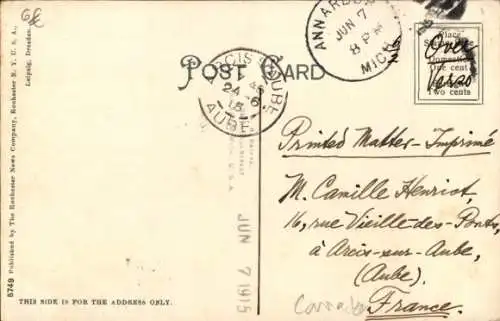 6f
ANN ARBOR
JUN 7
8 PM
MICH.
Place
Domestic
One cent
Two cents
Over
Verso
POST CARD
ARCIS S AUBE
24 -6
15
AUBE
Printed Matter - Imprimé
M. Camille Henriot,
16, rue Vieille-des-Ponts,
à Arcis-sur-Aube,
(Aube).
France.
JUN 7 1915
THIS SIDE IS FOR THE ADDRESS ONLY.
5749 Published by The Rochester News Company, Rochester N. Y. U. S. A.,
Leipzig, Dresden